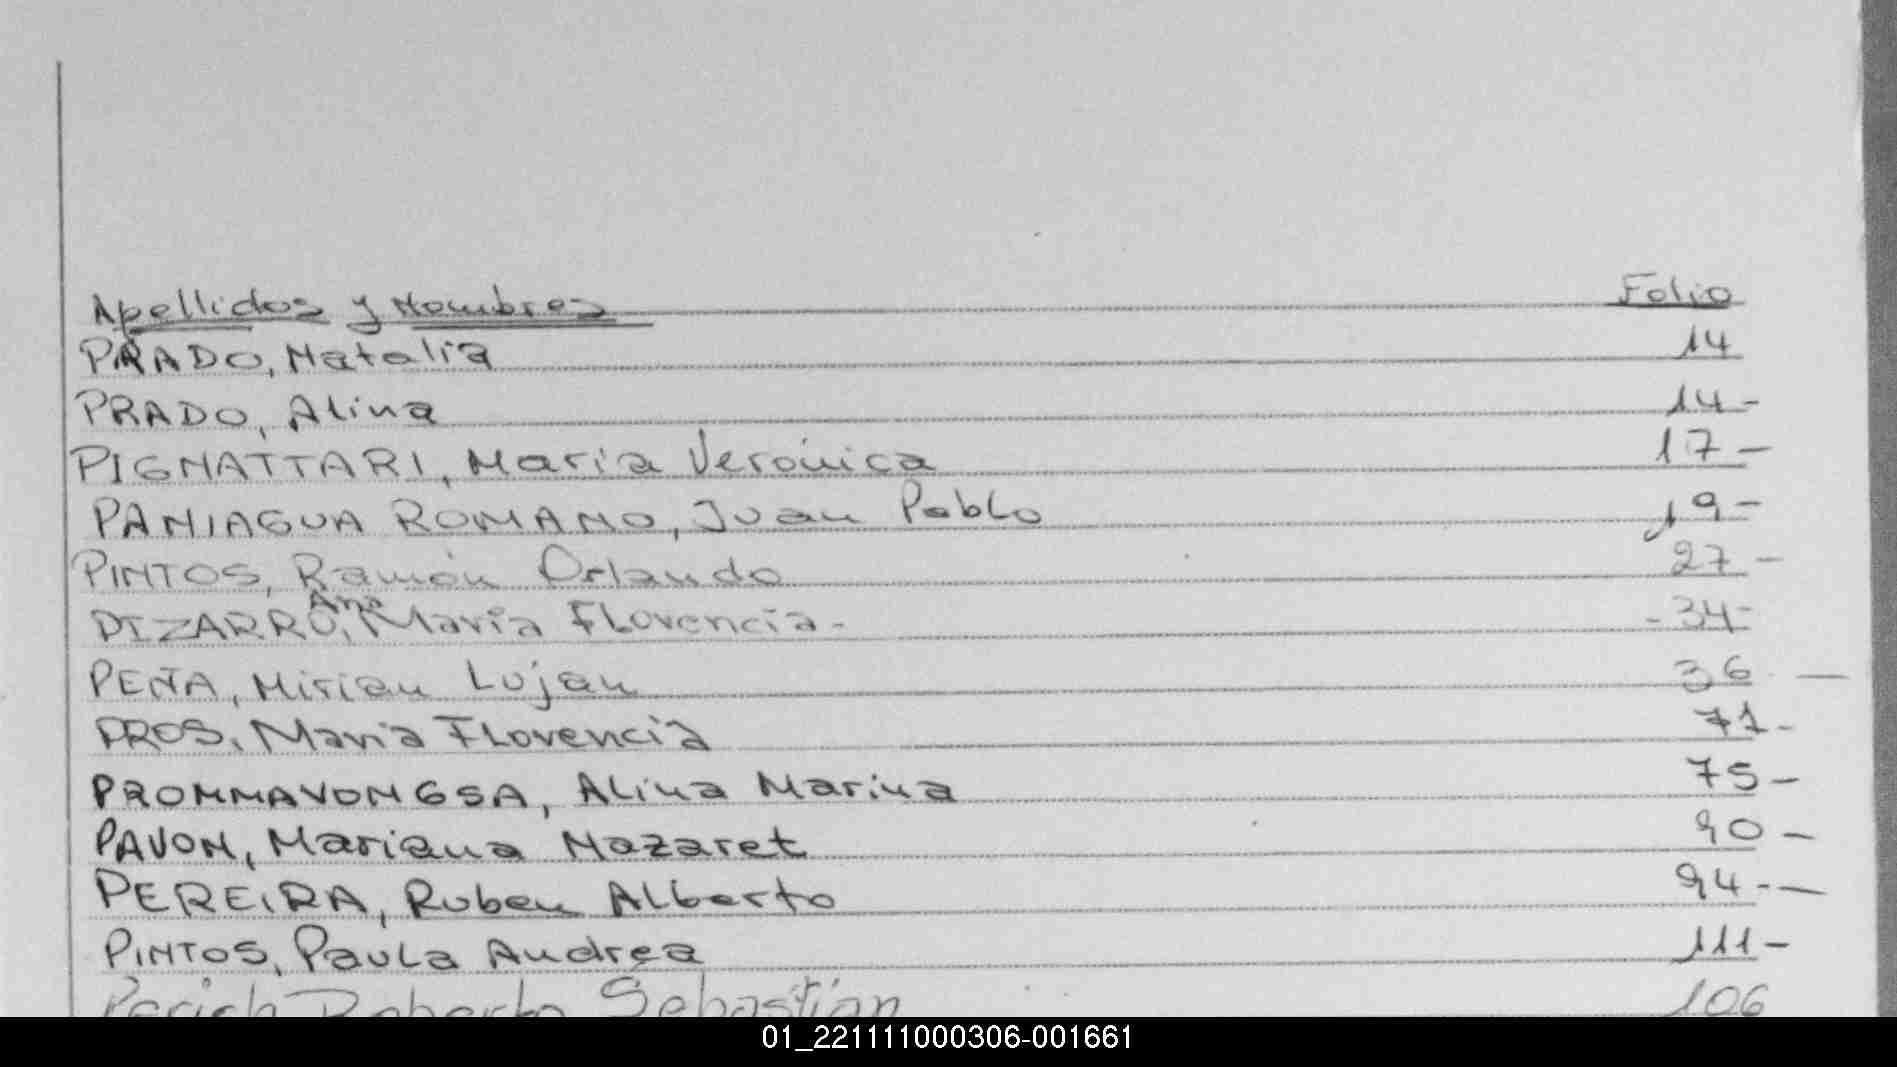 Apellidos y Nombres Folio
PRADO, Natalia 14
PRADO, Alina 14-
PIGNATTARI, María Verónica 17-
PANIAGUA ROMANO, Juan Pablo 19-
PINTOS, Ramón Orlando 27-
PIZARRO, Ana María Florencia- -34-
PEÑA, Mirian Lujan 36 —
PROS, Maria Florencia 71-
PROMMAVONGSA, Alina Marina 75-
PAVON, Mariana Nazaret 90-
PEREIRA, Ruben Alberto 94-—
PINTOS, Paula Andrea 111-
Perich Roberto Sebastián 106
01_221111000306-001661